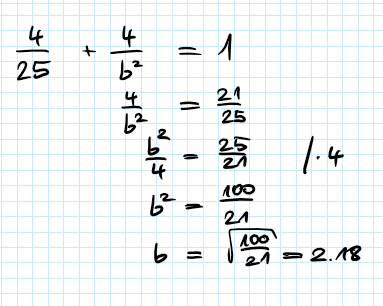 4/25 + 4/b² = 1
4/b² = 21/25
b²/4 = 25/21 /·4
b² = 100/21
b = √(100/21) = 2.18